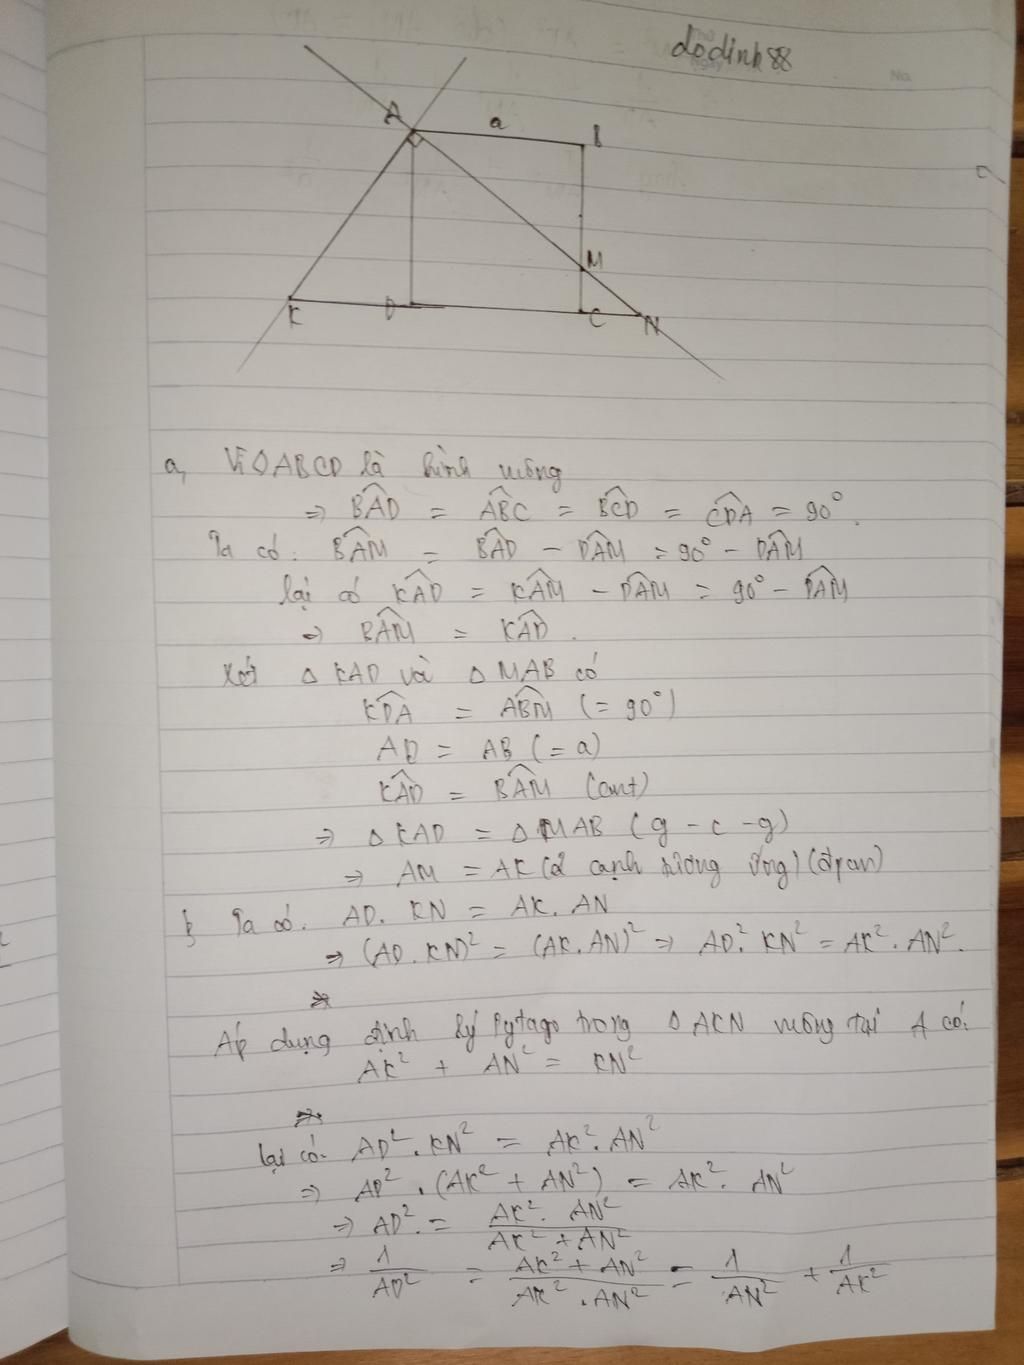 dodinh88
No.
A
a
B
M
K
D
C
N
a, Vì ◊ABCD là hình vuông
=> BÂD = ABC = BCD = CDA = 90°.
Ta có: BAM = BAD - DAM = 90° - DAM
lại có KAD = KAM - DAM = 90° - DAM
=> BAM = KAD.
Xét Δ KAD và Δ MAB có
KDA = ABM (= 90°)
AD = AB (= a)
KAD = BAM (cmt)
=> Δ KAD = Δ MAB (g - c - g)
=> AM = AK (2 cạnh tương ứng) (đpcm)
b, Ta có: AD. KN = AK. AN
=> (AD. KN)² = (AK. AN)² => AD². KN² = AK². AN².
Áp dụng định lý Pytago trong Δ AKN vuông tại A có:
AK² + AN² = KN²
lại có: AD². KN² = AK². AN²
=> AD². (AK² + AN²) = AK². AN²
=> AD² = AK². AN² / AK² + AN²
=> 1/AD² = AK² + AN² / AK². AN² = 1/AN² + 1/AK²